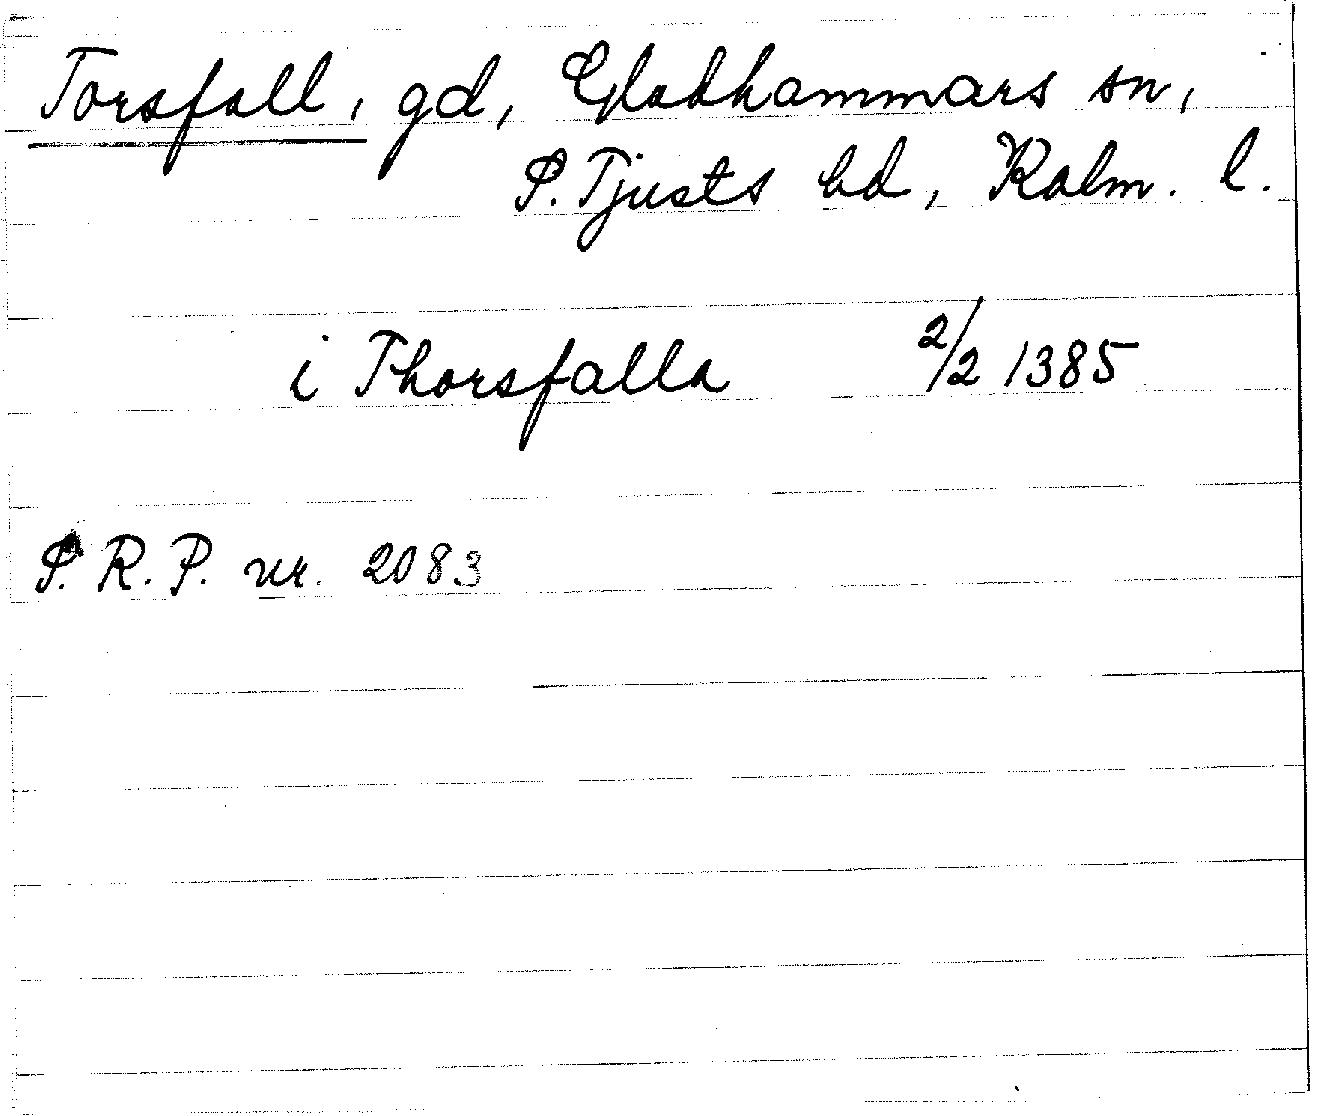 Torsfall, gd, Gladhammars sn,
S. Tjusts hd, Kalm. l.
i Thorsfalla 2/2 1385
S. R. P. nr. 2083